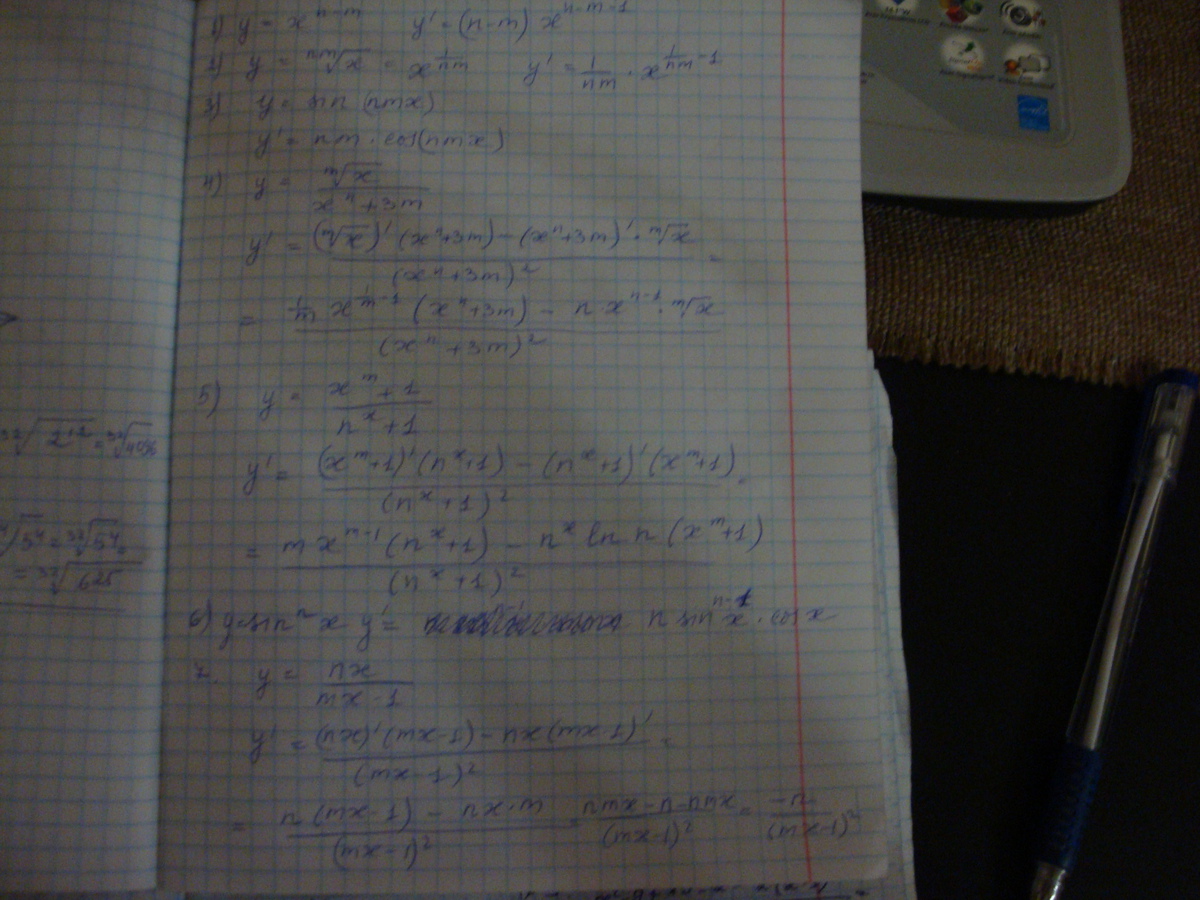 1) y = x^{n-m}   y' = (n-m) x^{n-m-1}
2) y = \sqrt[nm]{x} = x^{\frac{1}{nm}}   y' = \frac{1}{nm} · x^{\frac{1}{nm}-1}
3) y = sin (nmx)
y' = nm · cos(nmx)
4) y = \frac{\sqrt[m]{x}}{x^n+3m}
y' = \frac{(\sqrt[m]{x})'(x^n+3m) - (x^n+3m)' · \sqrt[m]{x}}{(x^n+3m)^2} =
= \frac{\frac{1}{m} x^{\frac{1}{m}-1} (x^n+3m) - n x^{n-1} · \sqrt[m]{x}}{(x^n+3m)^2}
5) y = \frac{x^m+1}{n^x+1}
y' = \frac{(x^m+1)'(n^x+1) - (n^x+1)'(x^m+1)}{(n^x+1)^2} =
= \frac{m x^{m-1}(n^x+1) - n^x ln n (x^m+1)}{(n^x+1)^2}
6) y=sin^n x   y' = n sin^{n-1} x · cos x
7. y = \frac{nx}{mx-1}
y' = \frac{(nx)'(mx-1) - nx(mx-1)'}{(mx-1)^2} =
= \frac{n(mx-1) - nx·m}{(mx-1)^2} = \frac{nmx-n-nmx}{(mx-1)^2} = \frac{-n}{(mx-1)^2}
\sqrt[32]{2^{12}} = \sqrt[32]{4096}
\sqrt{5^4} = \sqrt[32]{5^4} =
= \sqrt[32]{625}